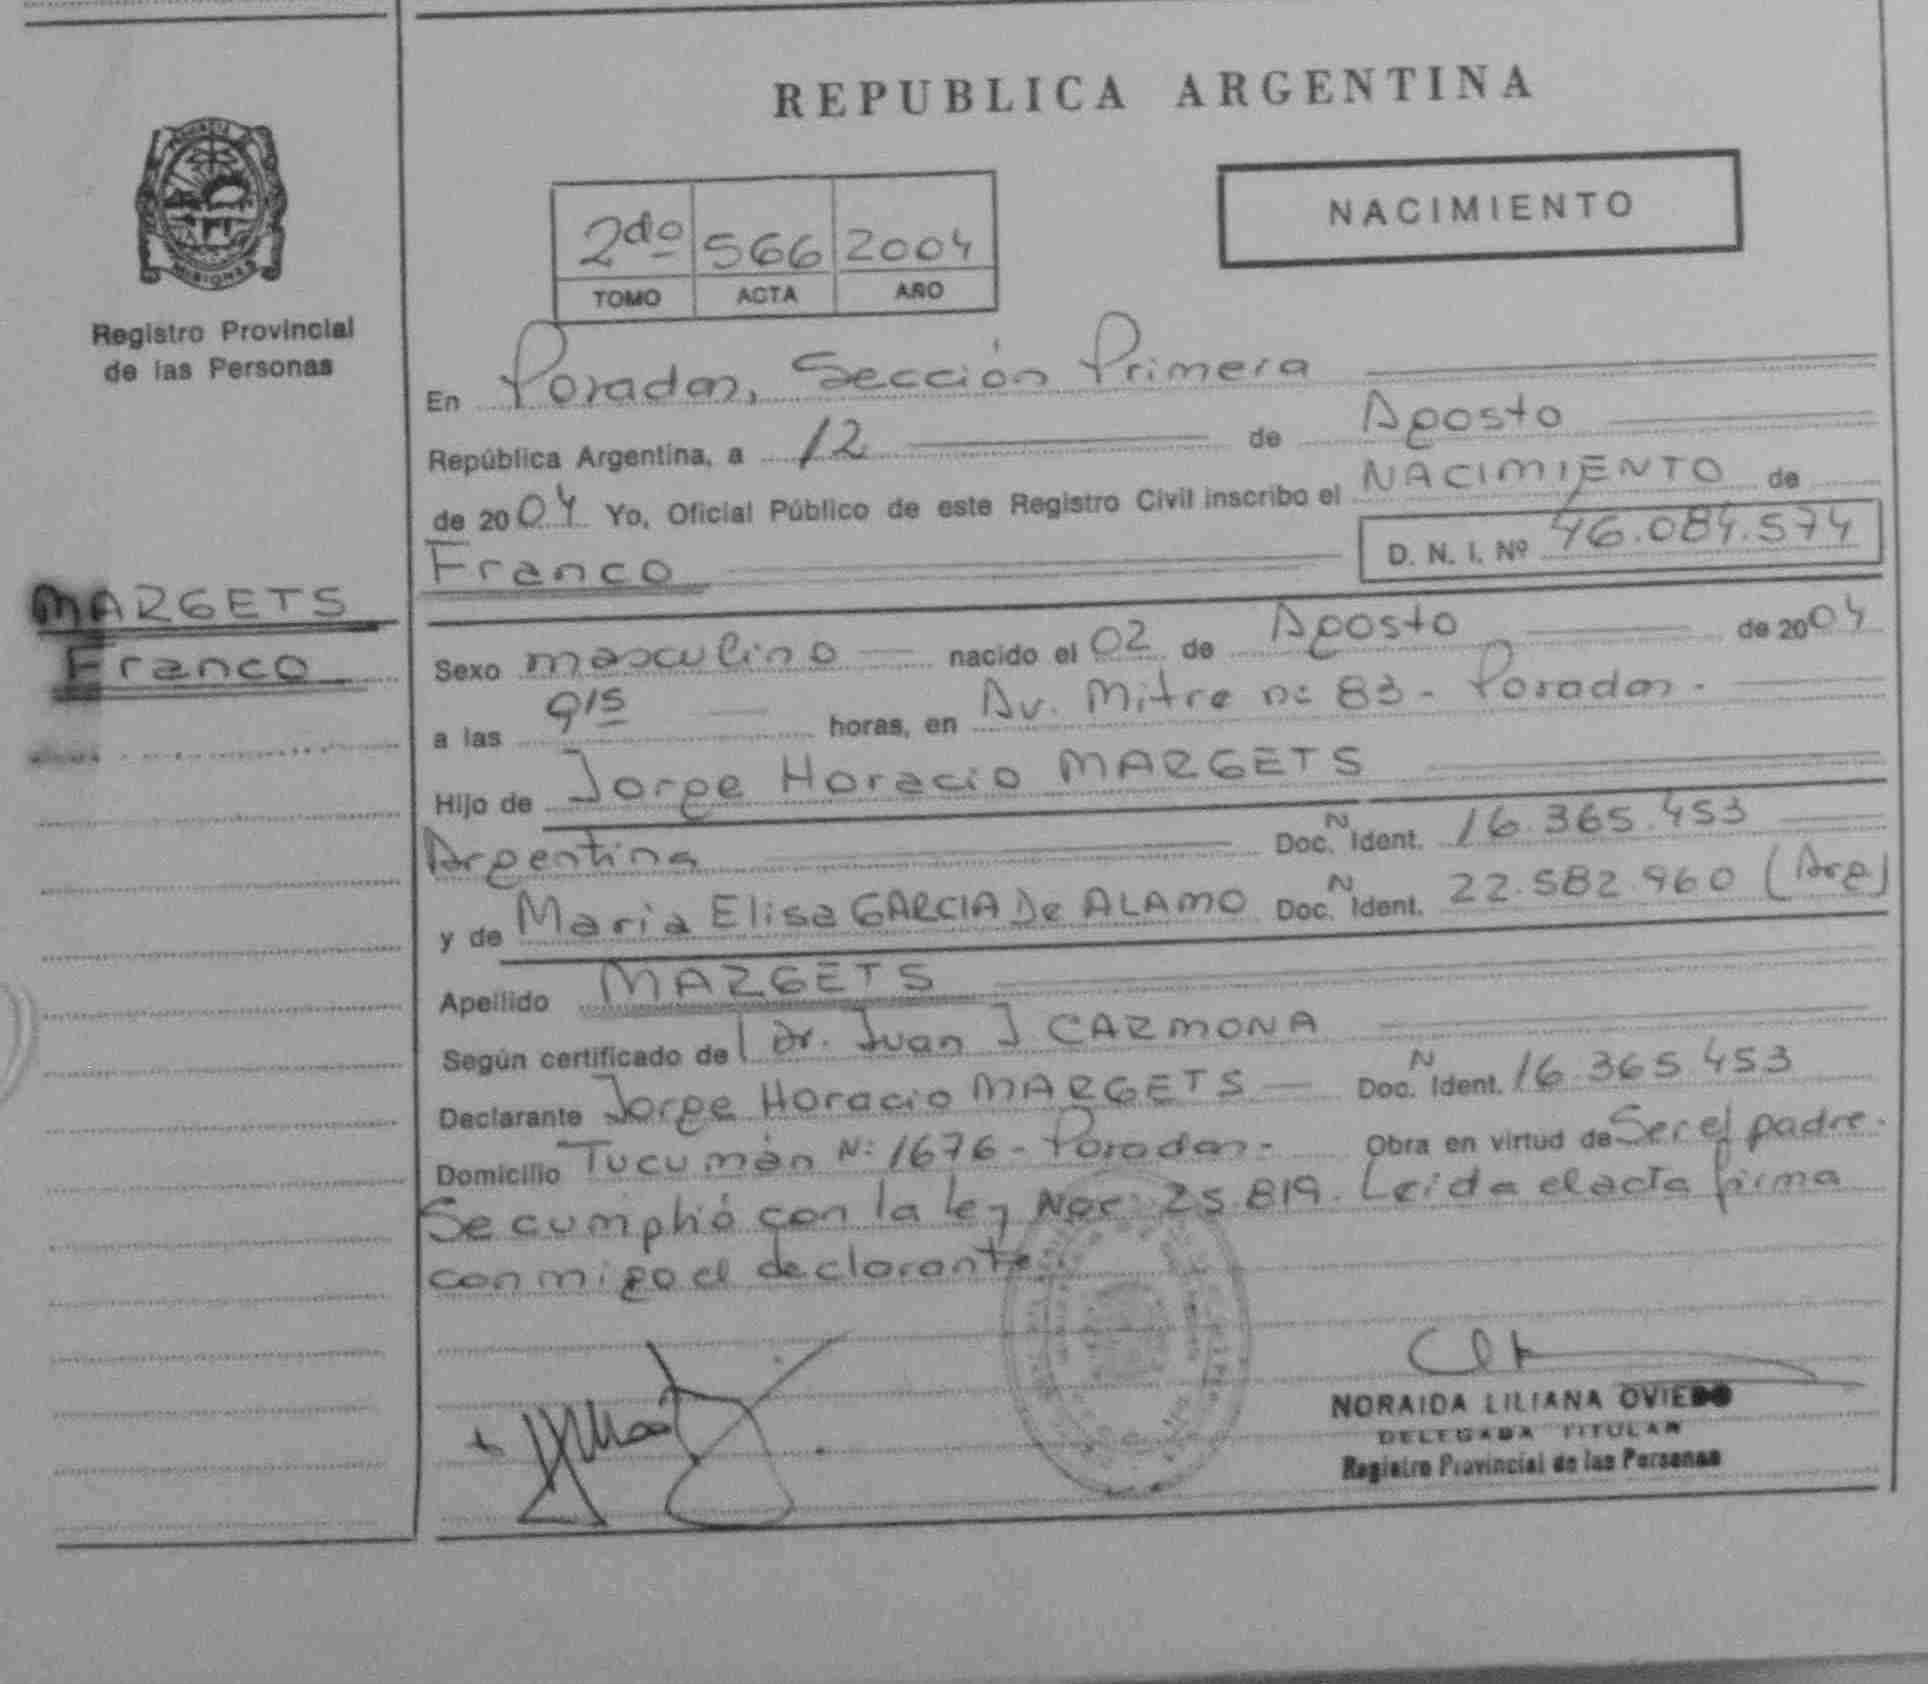 REPUBLICA ARGENTINA
NACIMIENTO
2do 566 2004
TOMO ACTA AÑO
MISIONES
Registro Provincial
de las Personas
En Posadas, Sección Primera
República Argentina, a 12 de Agosto
de 2004 Yo, Oficial Público de este Registro Civil inscribo el NACIMIENTO de
Franco D. N. I. Nº 46.084.574
MARGETS
Franco
Sexo masculino nacido el 02 de Agosto de 2004
a las 915 horas, en Av. Mitre nº 83 - Posadas.
Hijo de Jorge Horacio MARGETS
Argentina Doc. N Ident. 16.365.453
y de Maria Elisa GARCIA De ALAMO Doc. N Ident. 22.582.960 (Arg)
Apellido MARGETS
Según certificado de Dr. Juan J CARMONA
Declarante Jorge Horacio MARGETS Doc. N Ident. 16.365.453
Domicilio Tucumán Nº 1676 - Posadas - Obra en virtud de Ser el padre.
Se cumplió con la ley Nac. 25.819. Leida el acta firma
conmigo el declarante
NORAIDA LILIANA OVIEDO
DELEGADA TITULAR
Registro Provincial de las Personas